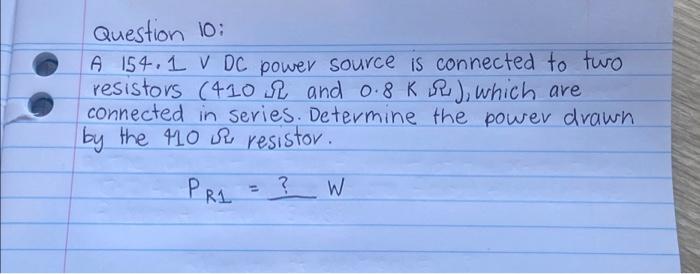 Question 10:
A 154.1 V DC power source is connected to two
resistors (410 Ω and 0.8 K Ω), which are
connected in series. Determine the power drawn
by the 410 Ω resistor.
P R1 = ? W